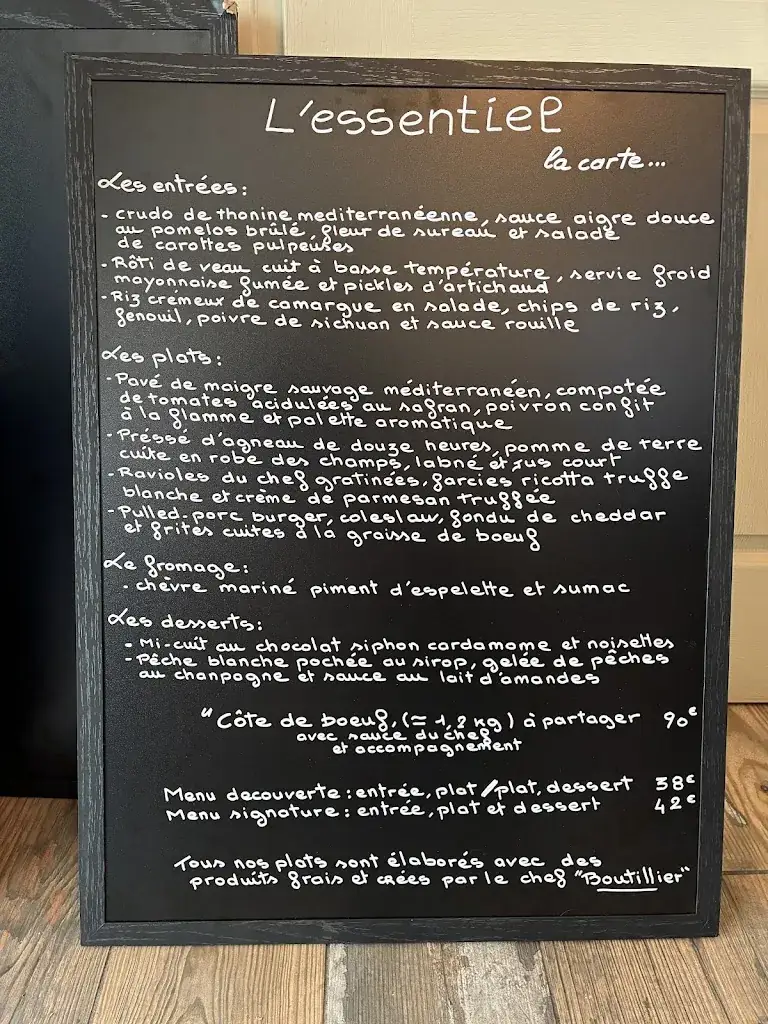 L'essentiel
la carte...
Les entrées:
- crudo de thonine mediterranéenne, sauce aigre douce
au pomelos brûlé, fleur de sureau et salade
de carottes pulpeuses
- Rôti de veau cuit à basse température, servie froid
mayonnaise fumée et pickles d'artichaud
- Riz crémeux de camargue en salade, chips de riz,
fenouil, poivre de sichuan et sauce rouille
Les plats:
- Pavé de maigre sauvage méditerranéen, compotée
de tomates acidulées au safran, poivron confit
à la flamme et palette aromatique
- Préssé d'agneau de douze heures, pomme de terre
cuite en robe des champs, labné et jus court
- Ravioles du chef gratinées, farcies ricotta truffe
blanche et crème de parmesan truffée
- Pulled-porc burger, coleslaw, fondu de cheddar
et frites cuites à la graisse de boeuf
Le fromage:
- chèvre mariné piment d'espelette et sumac
Les desserts:
- Mi-cuit au chocolat siphon cardamome et noisettes
- Pêche blanche pochée au sirop, gelée de pêches
au chanpagne et sauce au lait d'amandes
" Côte de boeuf, (≃ 1,2 kg) à partager 90€
avec sauce du chef
et accompagnement
Menu decouverte: entrée, plat / plat, dessert 38€
Menu signature: entrée, plat et dessert 42€
Tous nos plats sont élaborés avec des
produits frais et crées par le chef "Boutillier"